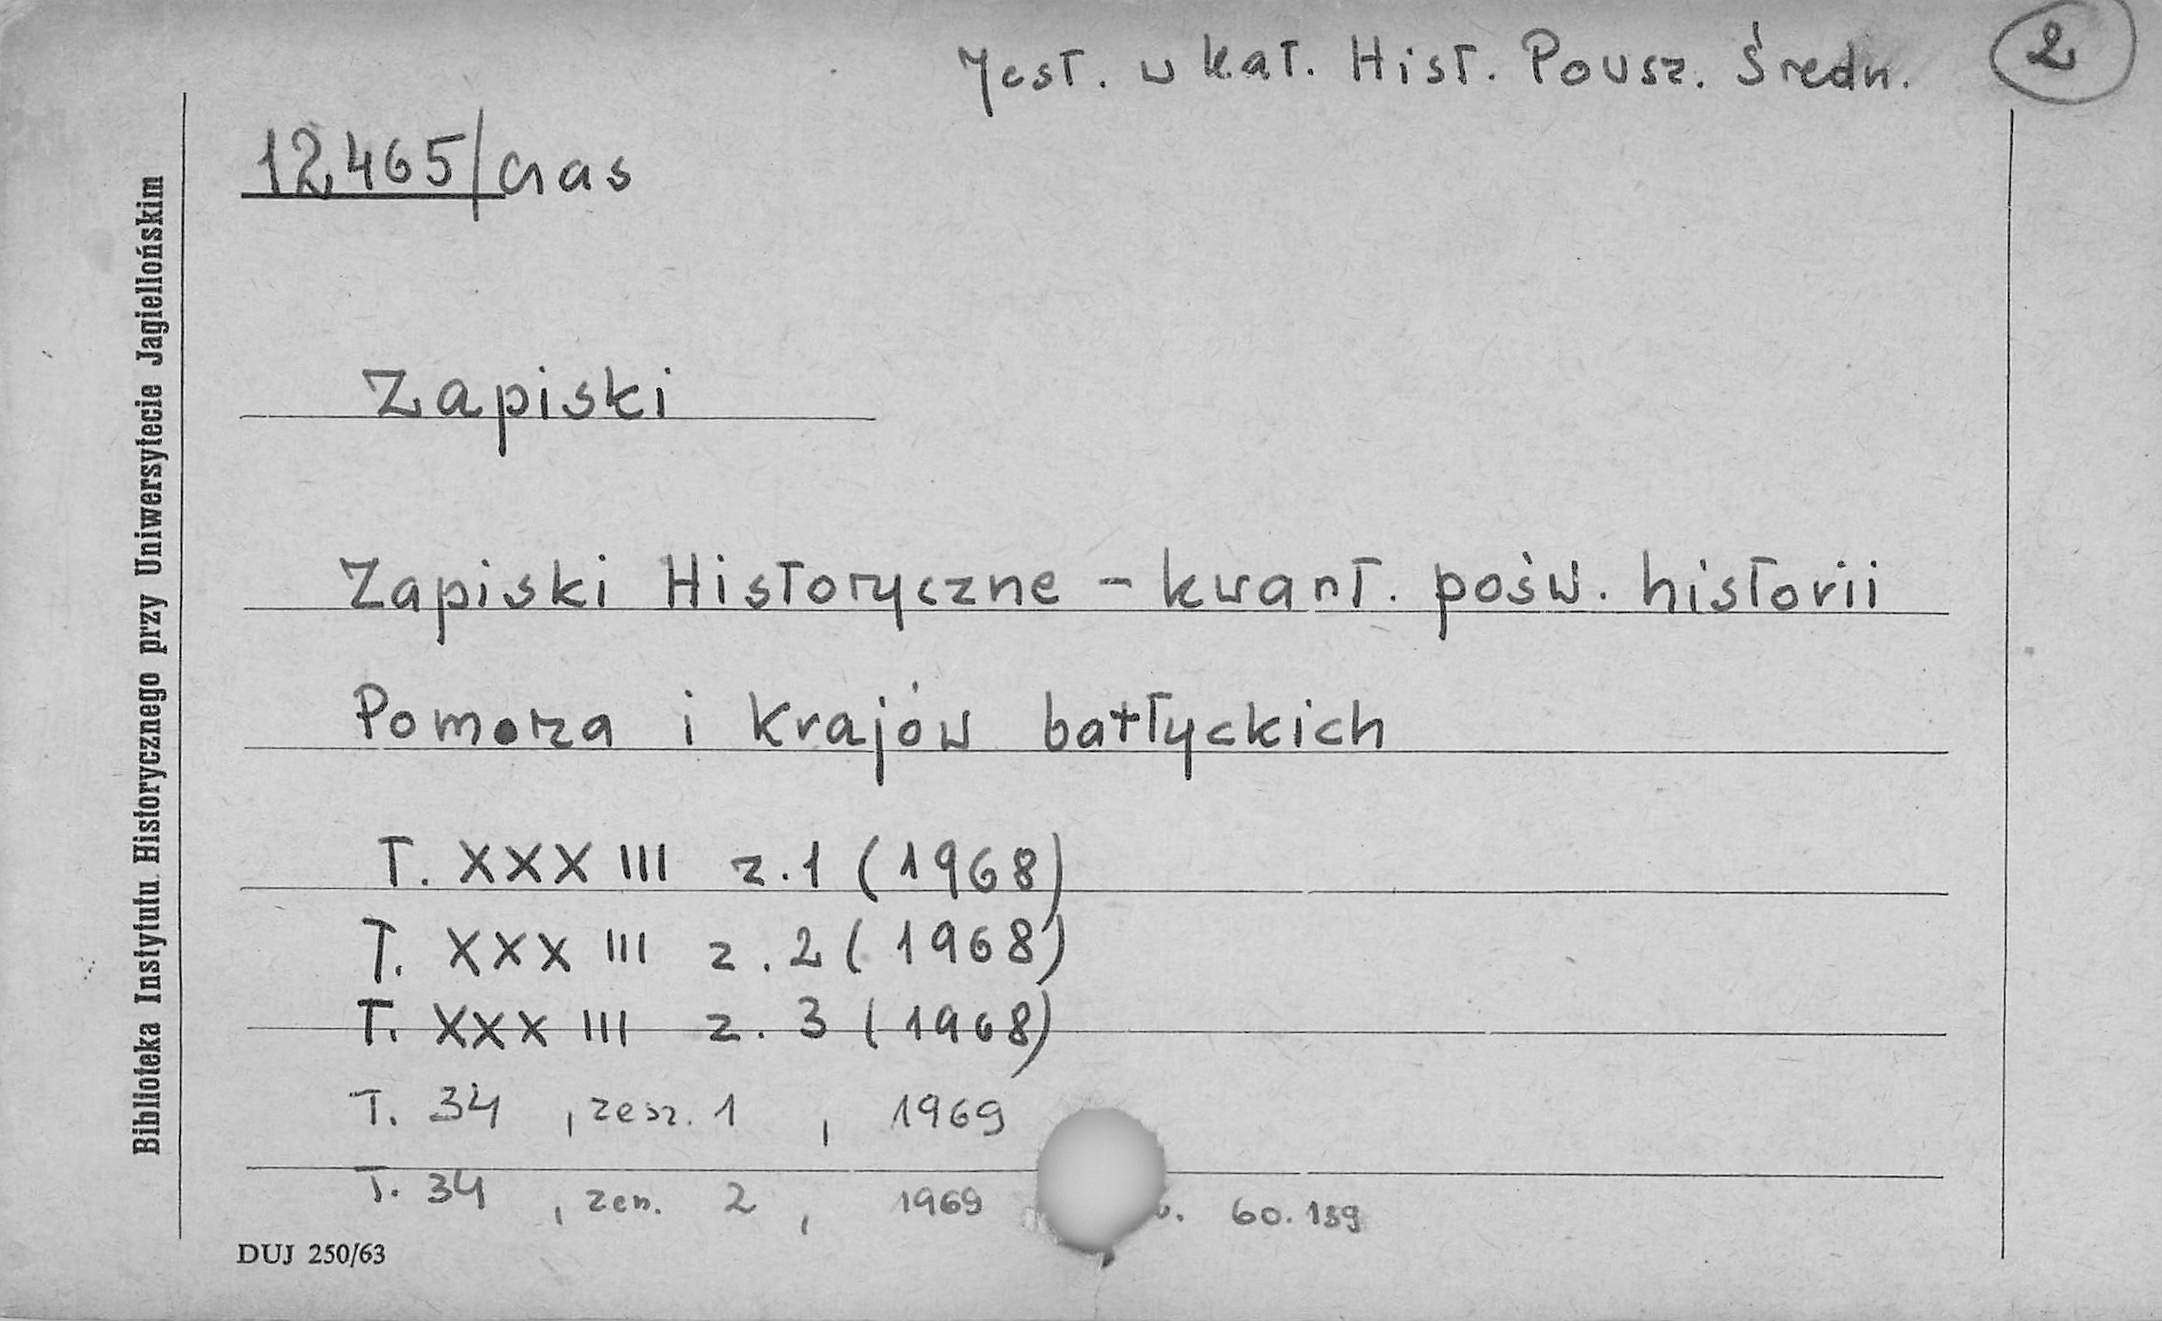 Jest. w kat. Hist. Powsz. Średn. 2
12,465/czas
Zapiski
Zapiski Historyczne - kwart. pośw. historii
Pomorza i krajów bałtyckich
T. XXXIII z.1 (1968)
T. XXXIII z.2 (1968)
T. XXXIII z. 3 (1968)
T. 34, zesz. 1, 1969
T. 34, zesz. 2, 1969 60.139
DUJ 250/63
Biblioteka Instytutu Historycznego przy Uniwersytecie Jagiellońskim